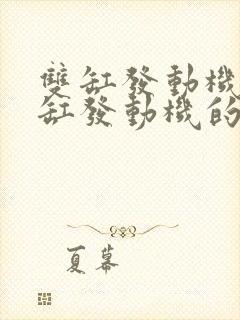 雙缸發動機
缸發動機的
夏幕